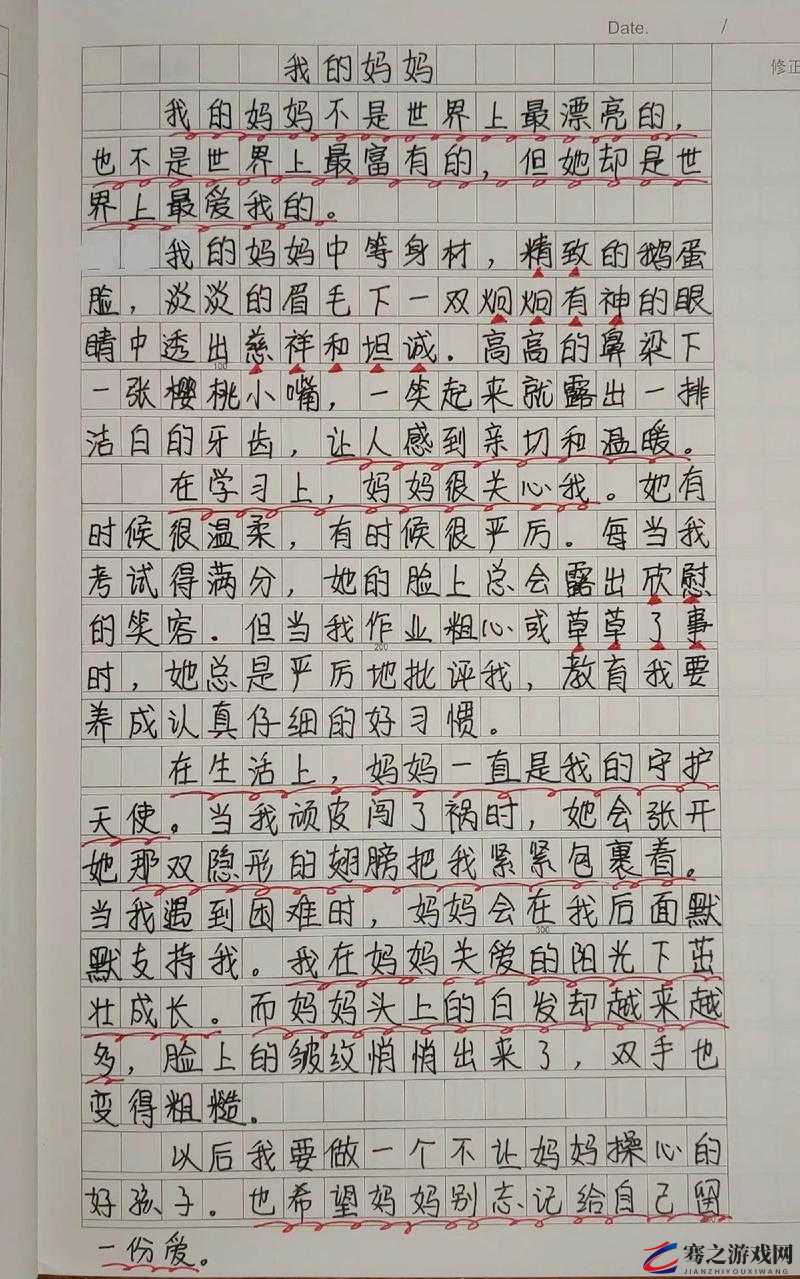 Date. /
修正
我的妈妈
我的妈妈不是世界上最漂亮的,
也不是世界上最富有的,但她却是世
界上最爱我的。
我的妈妈中等身材,精致的鹅蛋
脸,淡淡的眉毛下一双炯炯有神的眼
睛中透出慈祥和坦诚.高高的鼻梁下
100
一张樱桃小嘴,一笑起来就露出一排
洁白的牙齿,让人感到亲切和温暖。
在学习上,妈妈很关心我。她有
时候很温柔,有时候很严厉.每当我
考试得满分,她的脸上总会露出欣慰
的笑容.但当我作业粗心或草草了事
200
时,她总是严厉地批评我,教育我要
养成认真仔细的好习惯。
在生活上,妈妈一直是我的守护
天使。当我顽皮闯了祸时,她会张开
她那双隐形的翅膀把我紧紧包裹着。
当我遇到困难时,妈妈会在我后面默
300
默支持我。我在妈妈关爱的阳光下茁
壮成长.而妈妈头上的白发却越来越
多,脸上的皱纹悄悄出来了,双手也
变得粗糙。
以后我要做一个不让妈妈操心的
好孩子.也希望妈妈别忘记给自己留
一份爱。
骞之游戏网
JIANZHIYOUXIWANG